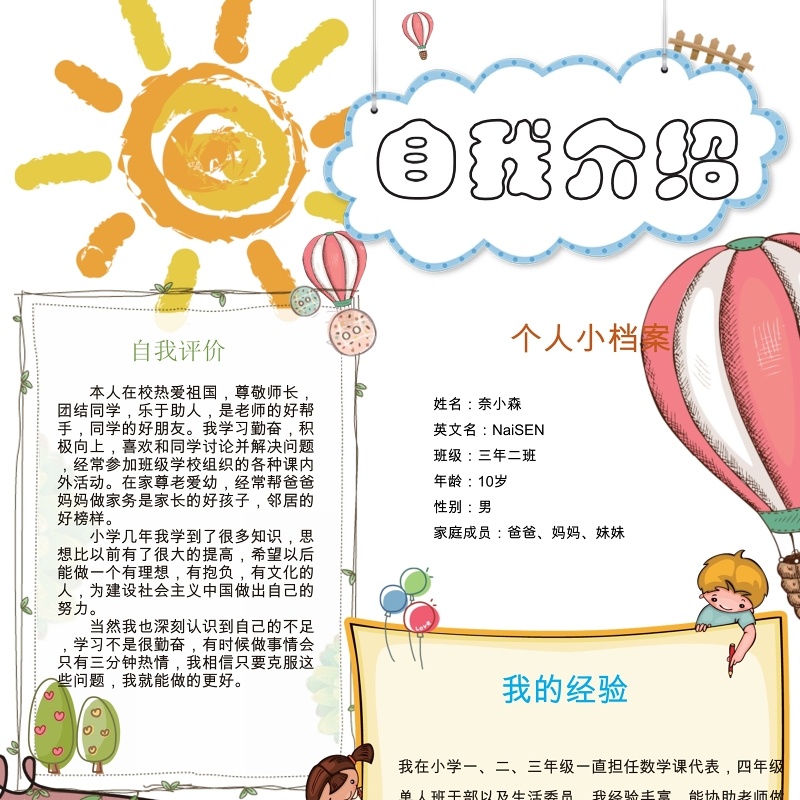 自我介绍
自我评价
本人在校热爱祖国，尊敬师长，
团结同学，乐于助人，是老师的好帮
手，同学的好朋友。我学习勤奋，积
极向上，喜欢和同学讨论并解决问题
，经常参加班级学校组织的各种课内
外活动。在家尊老爱幼，经常帮爸爸
妈妈做家务是家长的好孩子，邻居的
好榜样。
小学几年我学到了很多知识，思
想比以前有了很大的提高，希望以后
能做一个有理想，有抱负，有文化的
人，为建设社会主义中国做出自己的
努力。
当然我也深刻认识到自己的不足
，学习不是很勤奋，有时候做事情会
只有三分钟热情，我相信只要克服这
些问题，我就能做的更好。
个人小档案
姓名：奈小森
英文名：NaiSEN
班级：三年二班
年龄：10岁
性别：男
家庭成员：爸爸、妈妈、妹妹
LOVE
我的经验
我在小学一、二、三年级一直担任数学课代表，四年级
单人班干部以及生活委员，我经验丰富，能协助老师做